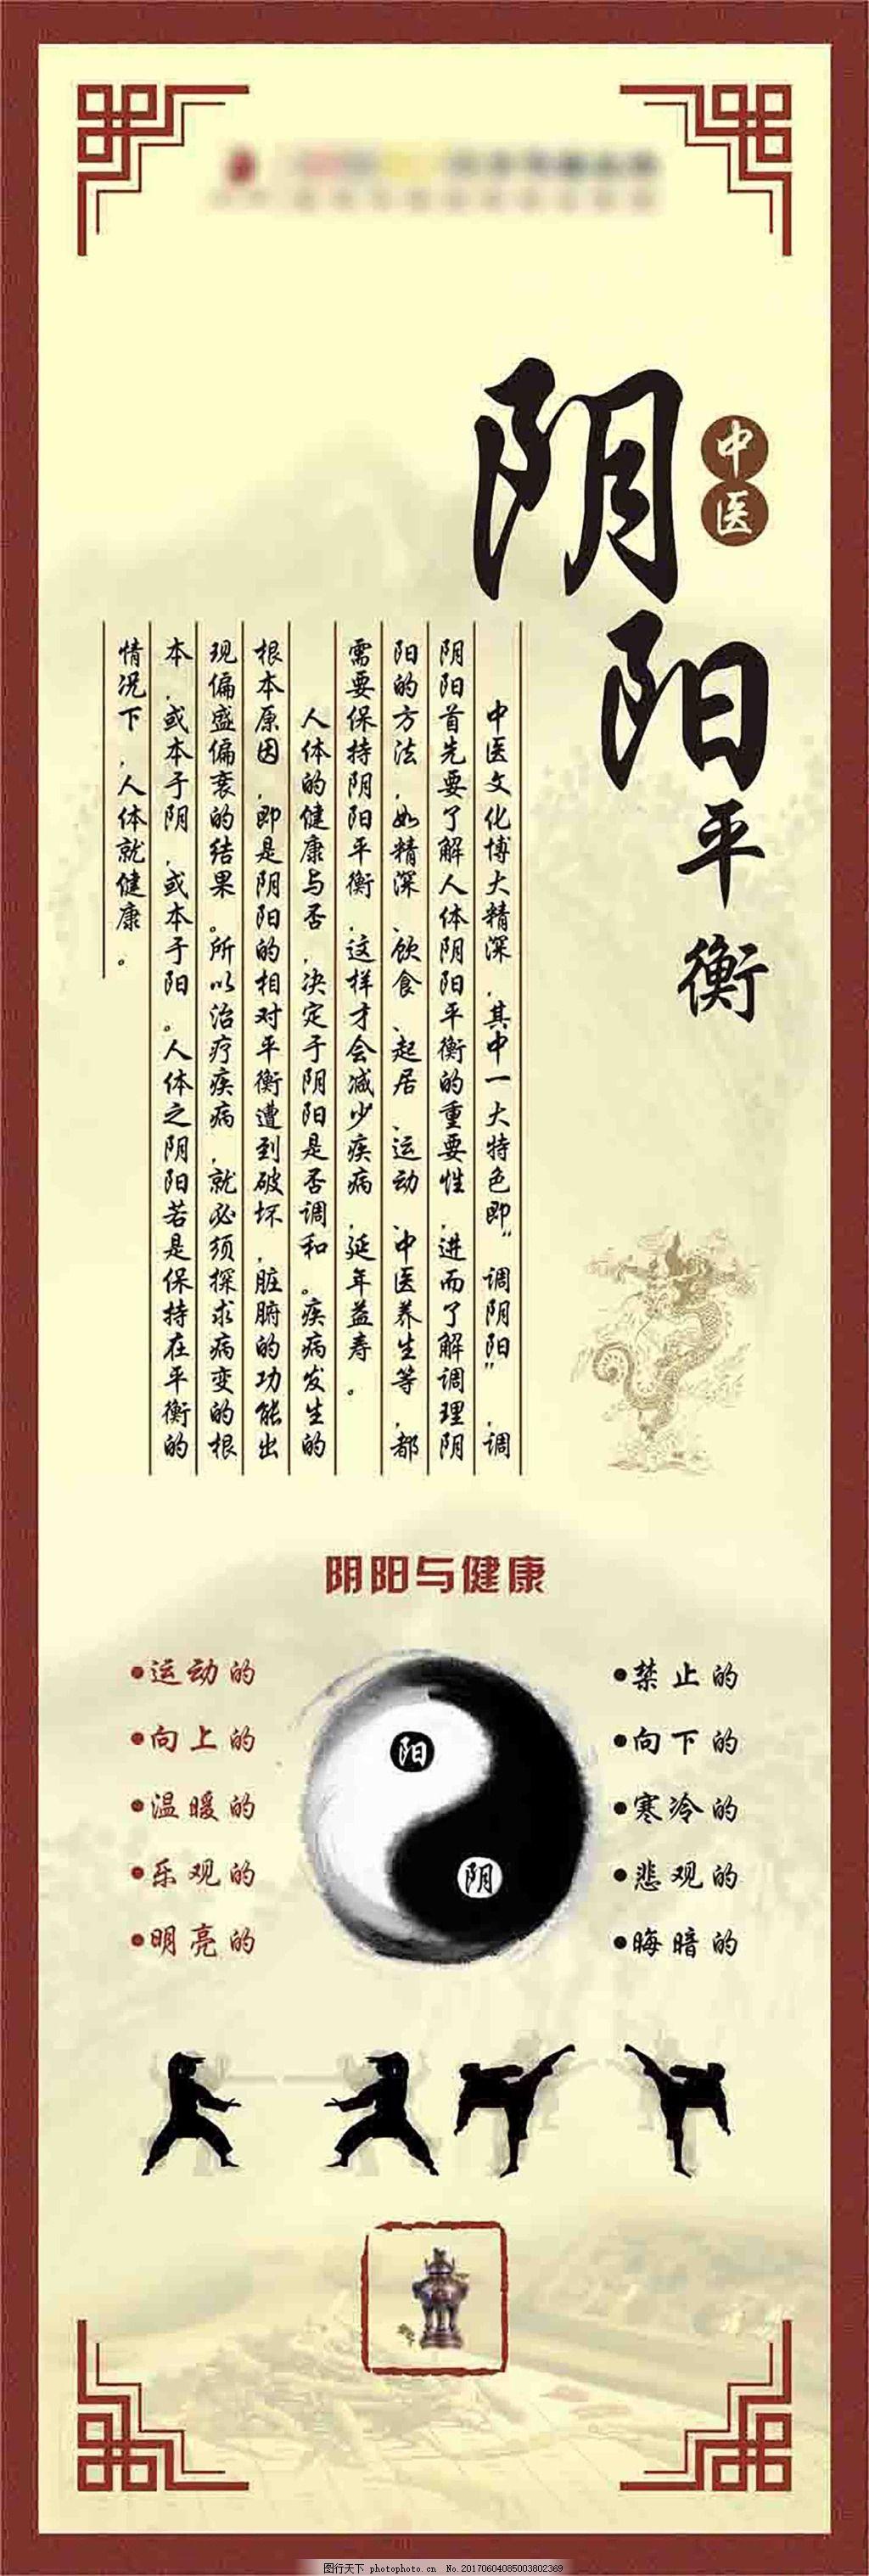 中医
阴阳平衡
中医文化博大精深,其中一大特色即“调阴阳”,调
阴阳首先要了解人体阴阳平衡的重要性,进而了解调理阴
阳的方法,如精深、饮食、起居、运动、中医养生等,都
需要保持阴阳平衡,这样才会减少疾病,延年益寿。
人体的健康与否,决定于阴阳是否调和。疾病发生的
根本原因,即是阴阳的相对平衡遭到破坏,脏腑的功能出
现偏盛偏衰的结果。所以治疗疾病,就必须探求病变的根
本,或本于阴,或本于阳。人体之阴阳若是保持在平衡的
情况下,人体就健康。
阴阳与健康
•运动的
•向上的
•温暖的
•乐观的
•明亮的
阳
阴
•禁止的
•向下的
•寒冷的
•悲观的
•晦暗的
图行天下 photophoto.cn No.20170604085003802369